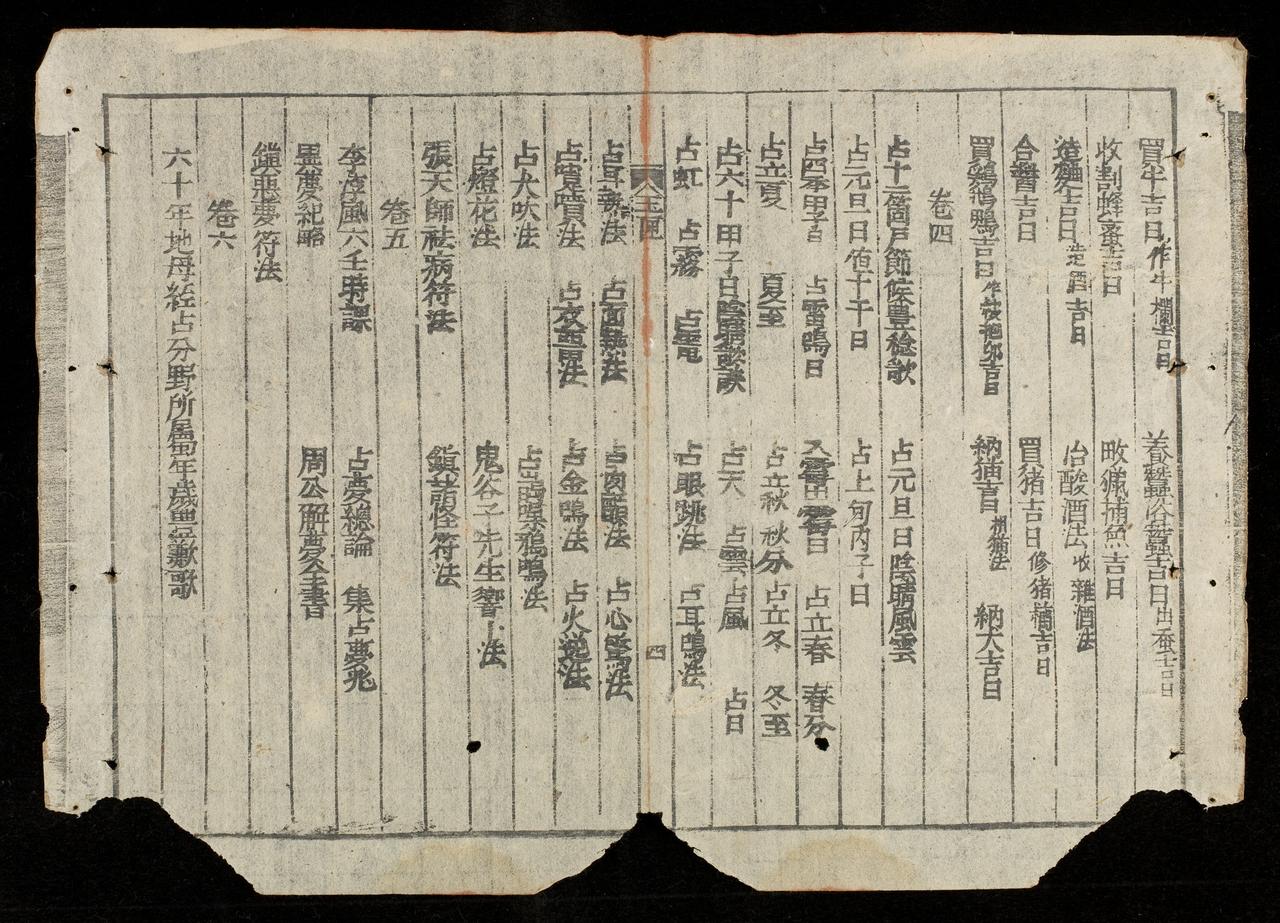 買牛吉日 作牛欄吉日 養蠶浴蠶吉日 出蚕吉日
收割蜂蜜吉日 畋獵捕魚吉日
造麯吉日 造酒吉日 治酸酒法 收雜酒法
合醬吉日 買猪吉日 修猪欄吉日
買鷄鵝鴨吉日 吉日 納猫吉日 相猫法 納犬吉日
卷四
占十二箇月節候豊稔歌 占元旦日陰晴風雲
占元旦日値十干日 占上旬丙子日
占四季甲子日 占雷鳴日 又雷出雷日 占立春 春分
占立夏 夏至 占立秋 秋分 占立冬 冬至
占六十甲子日陰晴歌訣 占天 占雲 占風 占日
占虹 占霧 占電 占眼跳法 占耳鳴法
全
四
占耳熱法 占面熱法 占肉顫法 占心驚法
占嚏噴法 占衣留法 占金鳴法 占火逆法
占犬吠法 占鵲噪鴉鳴法
占燈花法 鬼谷子先生響卜法
張天師祛病符法 鎮諸怪符法
卷五
李淳風六壬時課 占夢總論 集占夢兆
噩夢紀略 周公解夢全書
鎮惡夢符法
卷六
六十年地母經占分野所屬旬年歲豐歉歌